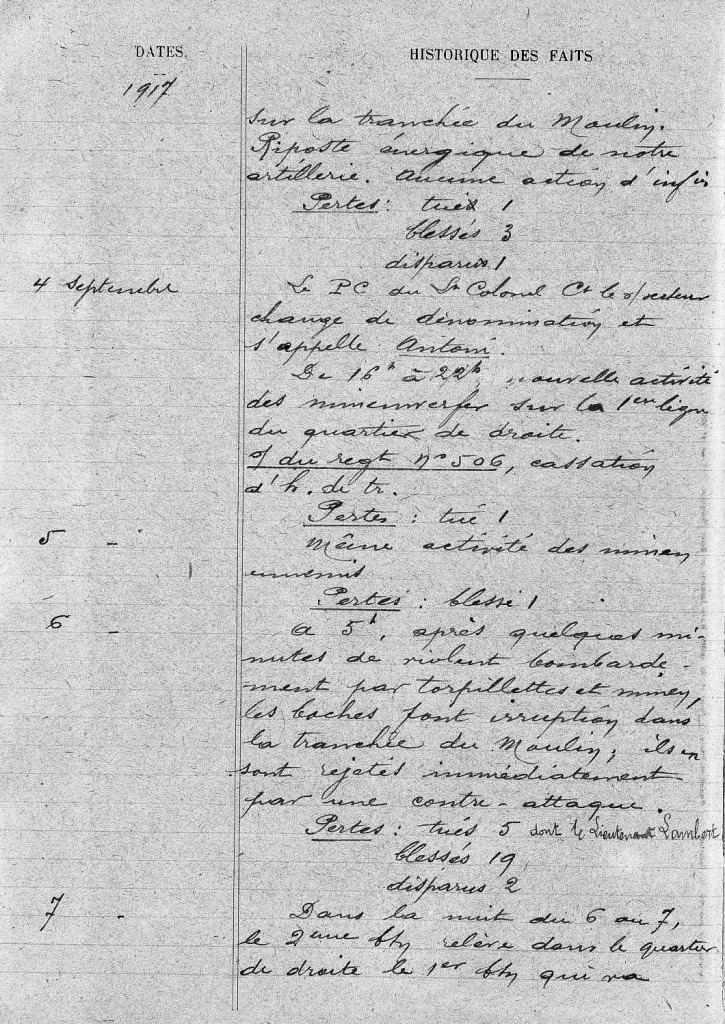 DATES.
HISTORIQUE DES FAITS
1917
sur la tranchée du Moulin.
Riposte énergique de notre
artillerie. Aucune action d'infie
Pertes : tués 1
blessés 3
disparus 1
4 Septembre
Le PC du Lt Colonel Ct le s/secteur
change de dénomination et
s'appelle Antoni.
De 16h à 22h, nouvelle activité
des minenwerfer sur la 1ere ligne
du quartier de droite.
O/ du regt N° 506, cassation
d'h. de tr.
Pertes : tué 1
5 -
Même activité des minen
ennemis
Pertes : blessé 1
6 -
A 5h, après quelques mi-
nutes de violent bombarde-
ment par torpillettes et minen,
les boches font irruption dans
la tranchée du Moulin ; ils en
sont rejetés immédiatement
par une contre-attaque.
Pertes : tués 5 dont le Lieutenant Lambert
blessés 19
disparus 2
7 -
Dans la nuit du 6 au 7,
le 2eme bon relève dans le quartier
de droite le 1er bon qui va